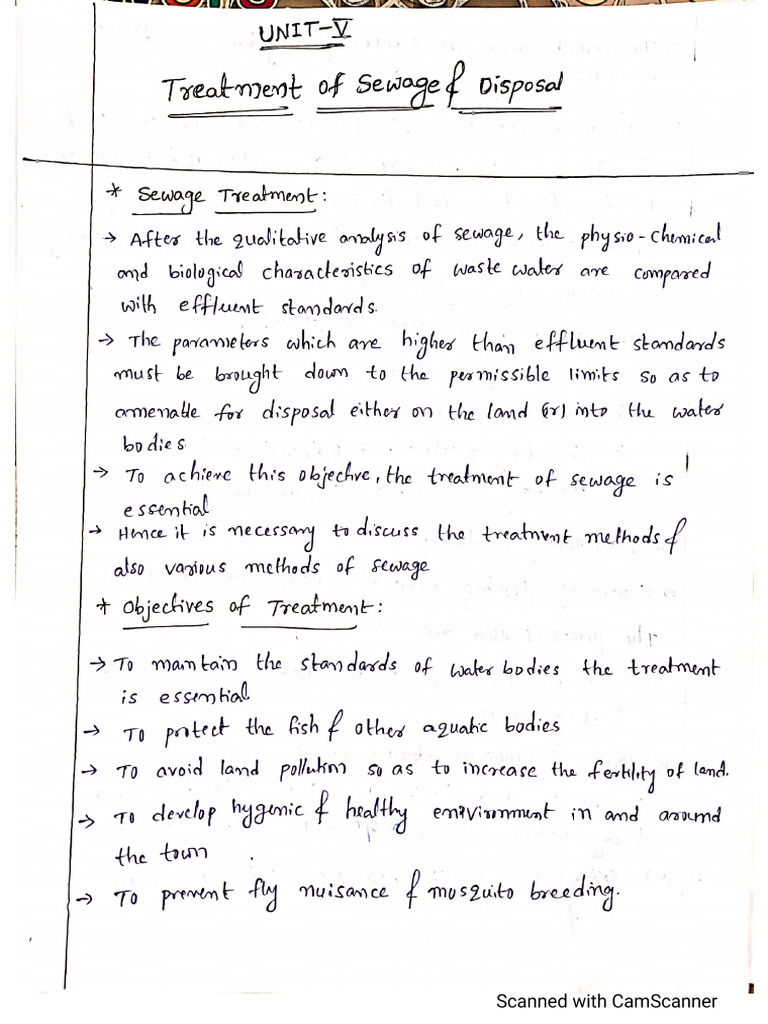 UNIT-V
Treatment of Sewage & Disposal
* Sewage Treatment:
→ After the qualitative analysis of sewage, the physio-chemical
and biological characteristics of waste water are compared
with effluent standards.
→ The parameters which are higher than effluent standards
must be brought down to the permissible limits so as to
amenable for disposal either on the land (or) into the water
bodies.
→ To achieve this objective, the treatment of sewage is
essential
→ Hence it is necessary to discuss the treatment methods &
also various methods of sewage
* Objectives of Treatment:
→ To maintain the standards of water bodies the treatment
is essential
→ To protect the fish & other aquatic bodies
→ To avoid land pollution so as to increase the fertility of land.
→ To develop hygenic & healthy environment in and around
the town
→ To prevent fly nuisance & mosquito breeding.
Scanned with CamScanner